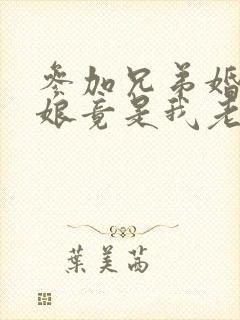 参加兄弟婚
娘竟是我老
葉美茜